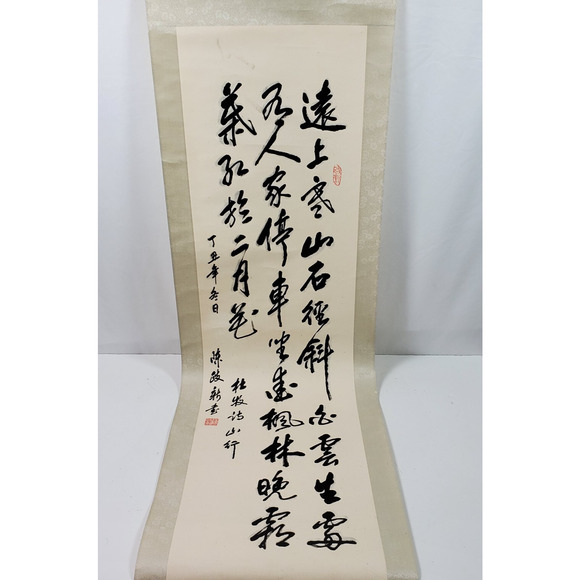 遠上寒山石徑斜白雲生處
有人家停車坐愛楓林晚霜
葉紅於二月花
杜牧詩山行
丁丑年冬日
陳政新書